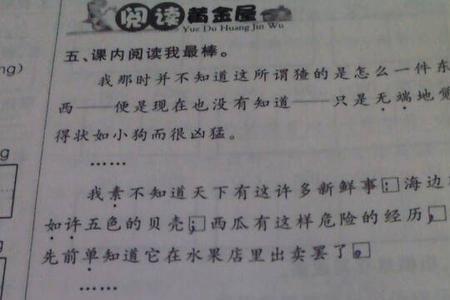 阅读黄金屋
Yue Du Huang Jin Wu
五、课内阅读我最棒。
ng)
我那时并不知道这所谓猹的是怎么一件东
西——便是现在也没有知道——只是无端地觉
得状如小狗而很凶猛。
……
g
我素不知道天下有这许多新鲜事：海边
如许五色的贝壳；西瓜有这样危险的经历，
先前单知道它在水果店里出卖罢了。
……